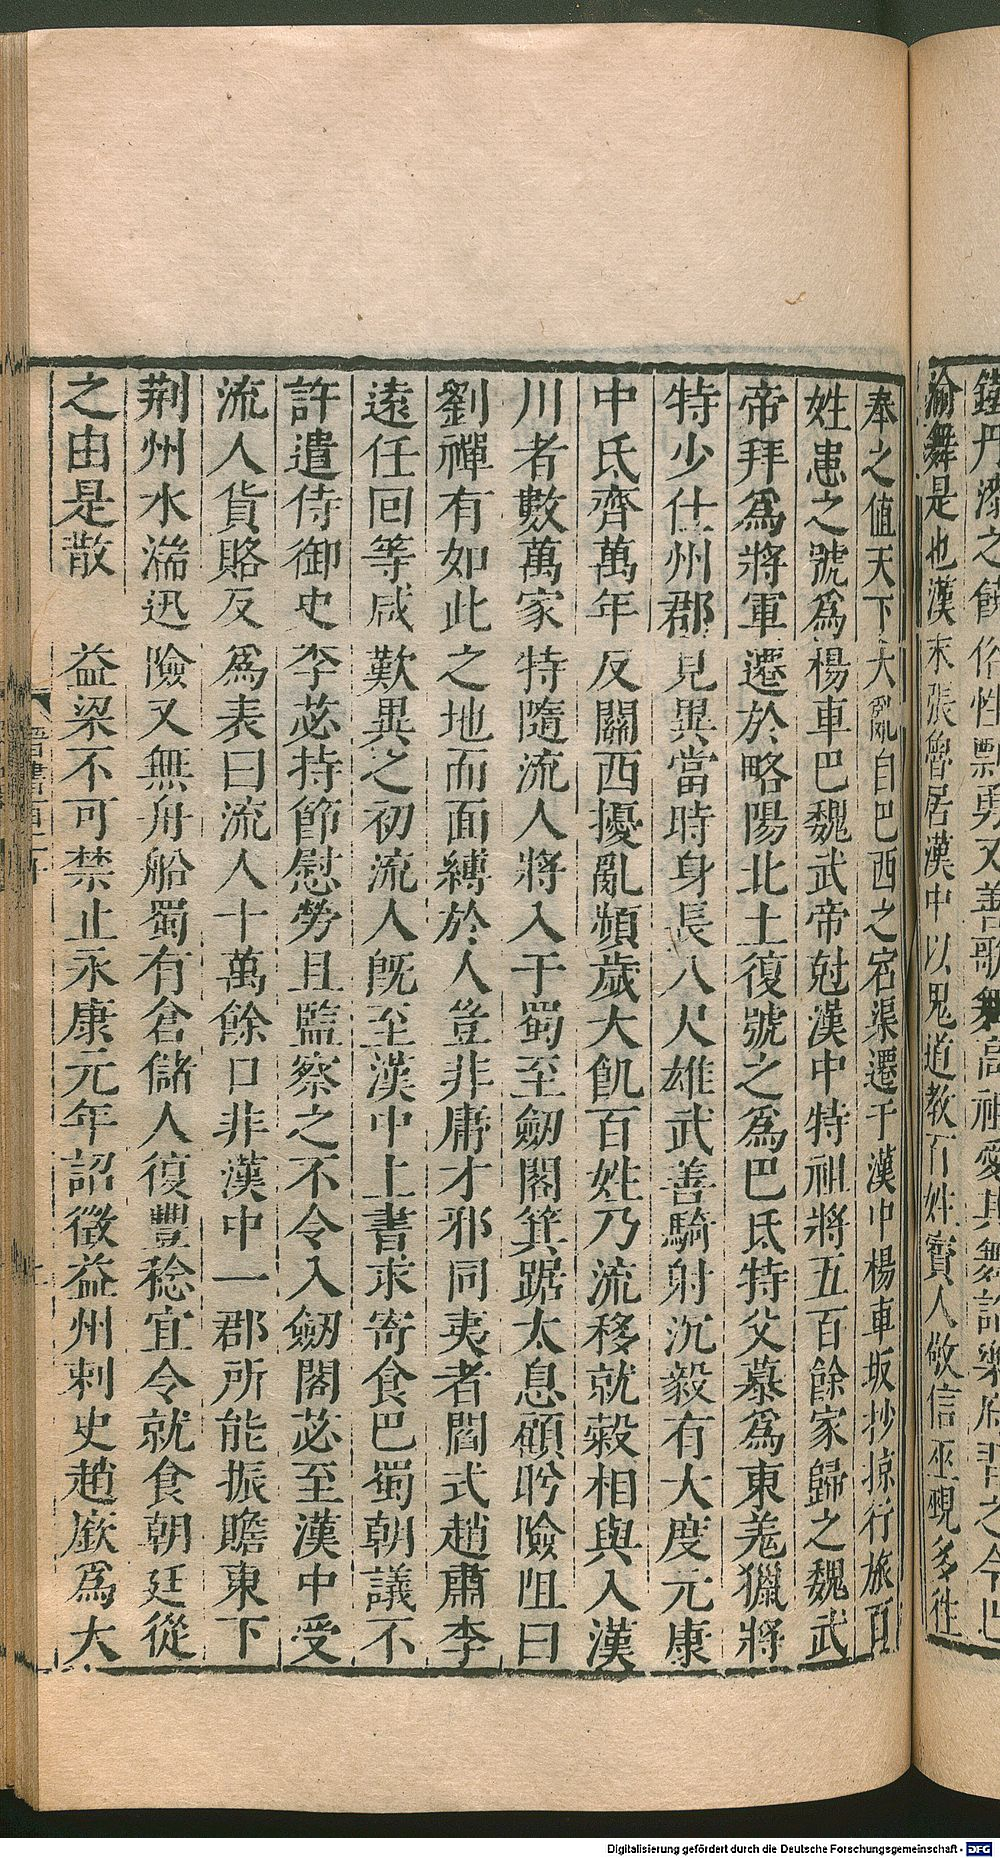 鐵丹漆之
俗性剽勇又善歌舞高祖愛其舞詔樂府習之今巴
渝舞是也漢末張魯居漢中以鬼道教百姓賨人敬信巫覡多往
奉之值天下大亂自巴西之宕渠遷于漢中楊車坂抄掠行旅百
姓患之號爲楊車巴魏武帝尅漢中特祖將五百餘家歸之魏武
帝拜爲將軍遷於略陽北土復號之爲巴氐特父慕爲東羌獵將
特少仕州郡見異當時身長八尺雄武善騎射沉毅有大度元康
中氐齊萬年反關西擾亂頻歲大飢百姓乃流移就榖相與入漢
川者數萬家特隨流人將入于蜀至劒閣箕踞太息顧眄險阻曰
劉禪有如此之地而面縛於人豈非庸才邪同夷者閻式趙肅李
遠任回等咸歎異之初流人旣至漢中上書求寄食巴蜀朝議不
許遣侍御史李苾持節慰勞且監察之不令入劒閣苾至漢中受
流人貨賂反爲表曰流人十萬餘口非漢中一郡所能振贍東下
荆州水湍迅險又無舟船蜀有倉儲人復豐稔宜令就食朝廷從
之由是散益梁不可禁止永康元年詔徵益州刺史趙廞爲大
晉書
Digitalisierung gefördert durch die Deutsche Forschungsgemeinschaft - DFG